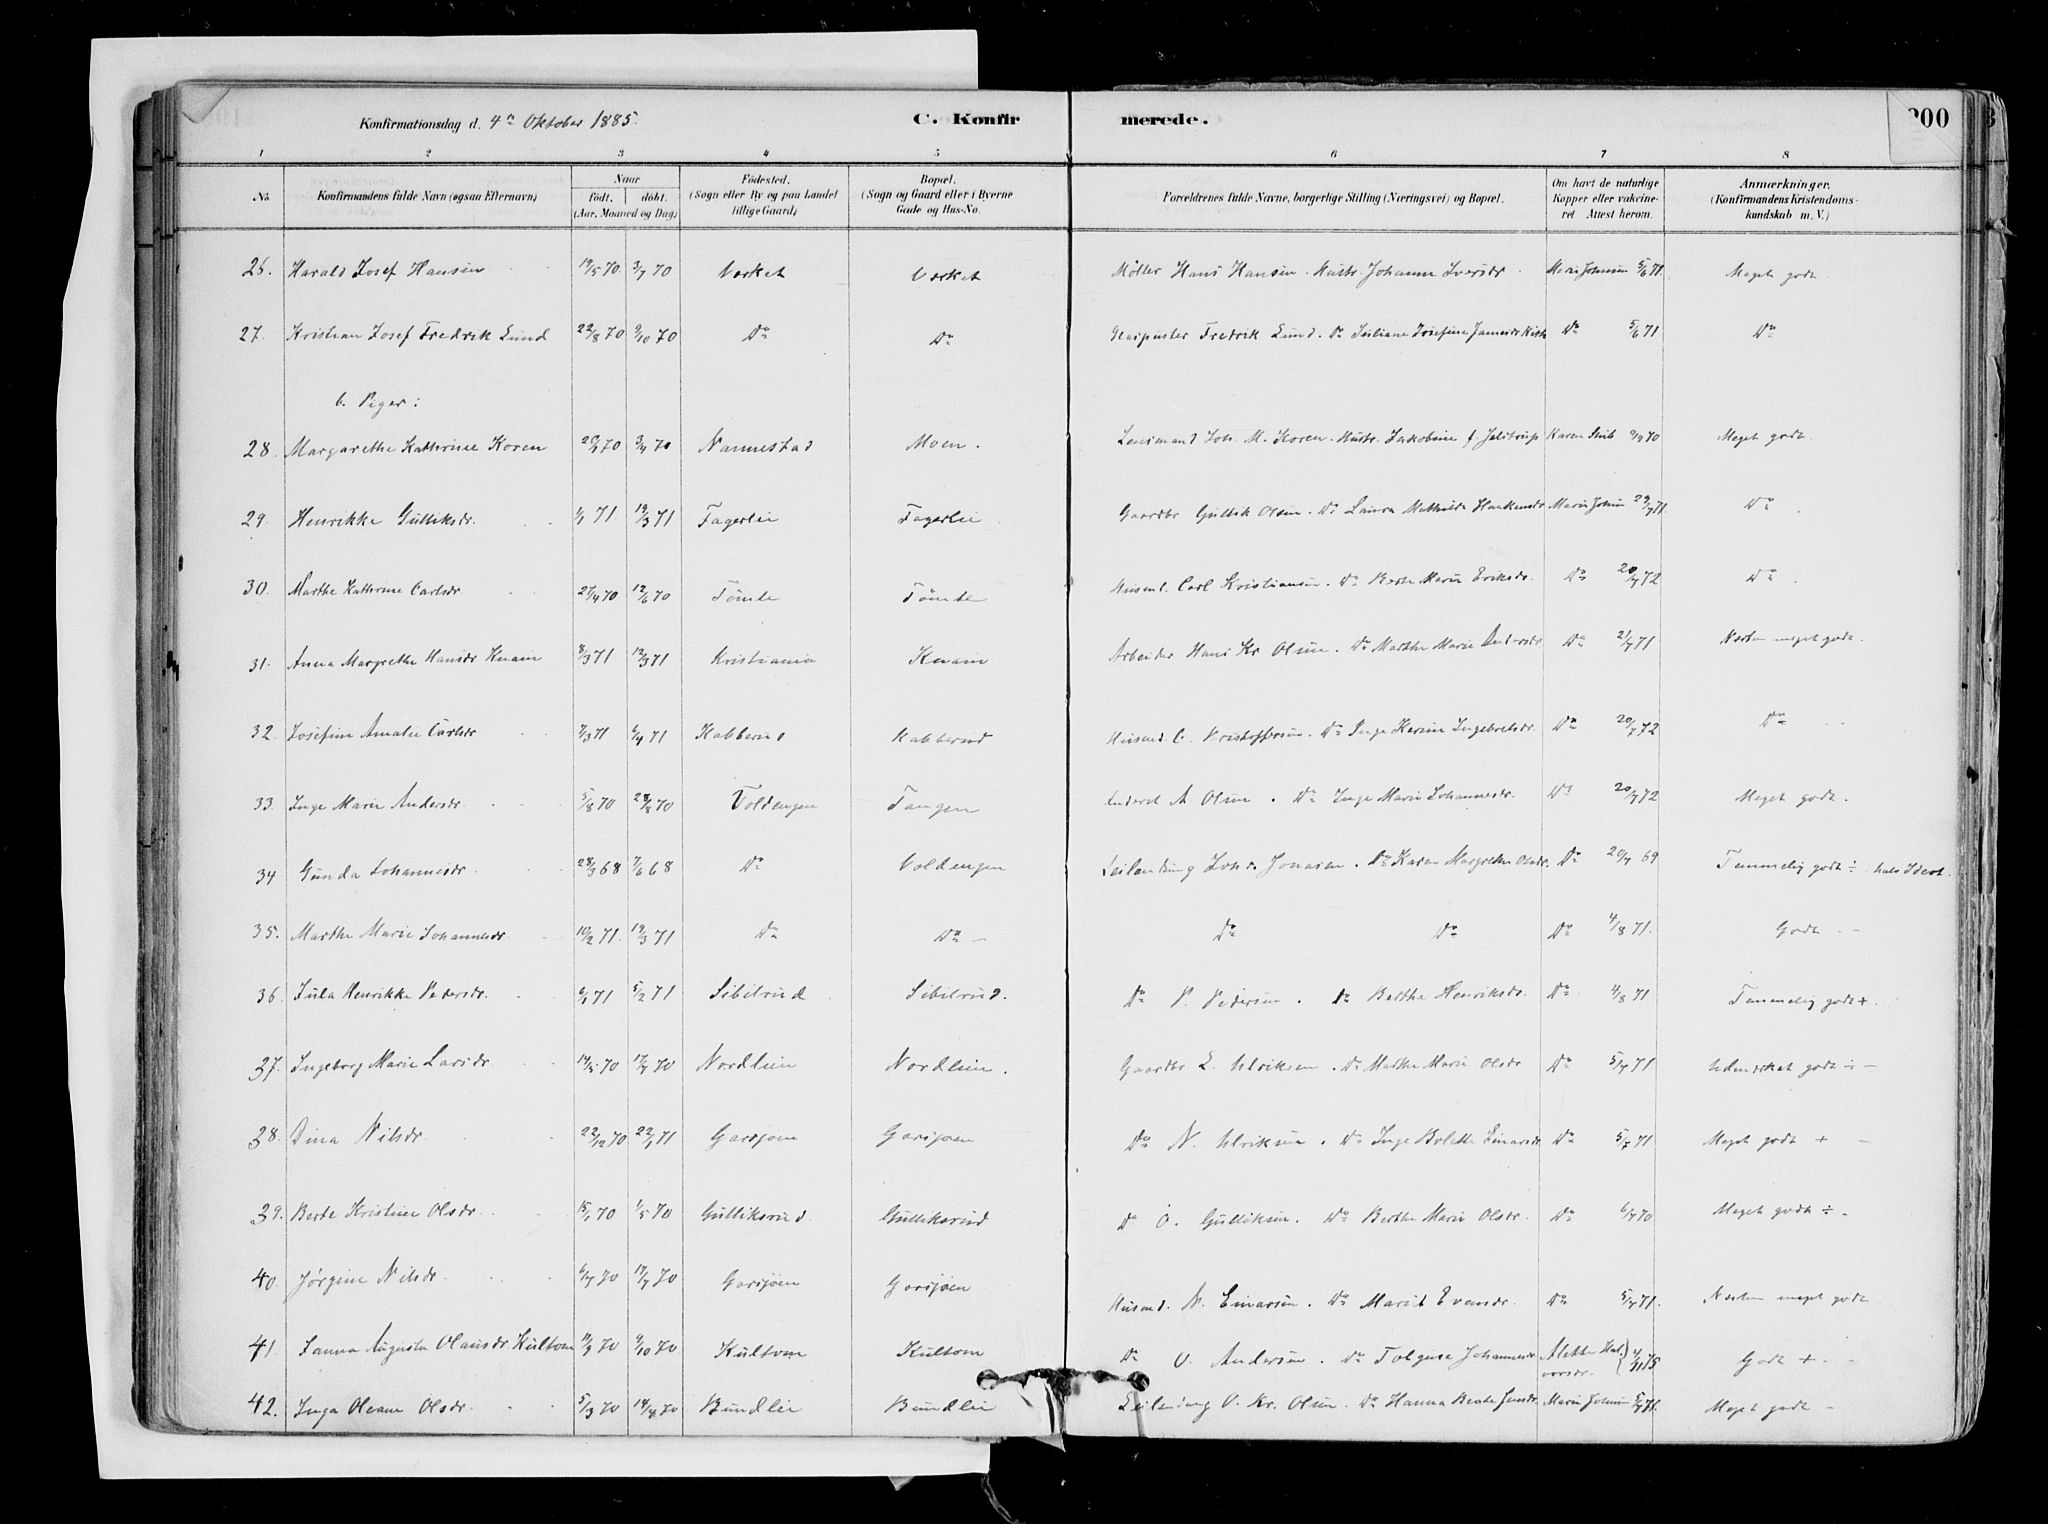 Konfirmationsdag d. 4de Oktober 1885. C. Konfirmerede. 200
1 2 3 4 5 6 7 8
No. Konfirmandens fulde Navn (ogsaa Efternavn) Naar født. døbt. (Aar, Maaned og Dag) Fødested. (Sogn eller By og paa Landet tillige Gaard) Bopæl. (Sogn og Gaard eller i Byerne Gade og Hus-No. Forældrenes fulde Navne, borgerlige Stilling (Næringsvei) og Bopæl. Om havt de naturlige Kopper eller vakcineret Attest herom. Anmærkninger. (Konfirmandens Kristendomskundskab m. V.)
26. Harald Josef Hansen 19/5 70 3/7 70 Værket Værket Møller Hans Hansen. Hustr. Johanne Iversdr. Marie Johnsen 5/6 71 Meget godt
27. Kristian Josef Fredrik Lund 22/8 70 9/10 70 Do Do Fredrik Lund. Do Juliane Josefine Do 5/6 71 Do
b. Piger:
28. Margarethe Kathrine Koren 20/1 70 3/4 70 Nannestad Moen. Lensmand Joh. M. Koren. Hustr. Jakobine f. Jelstrup Karen 70 Meget godt.
29. Henrikke Gulliksdr. 1/1 71 19/3 71 Fagerlie Fagerlie Gaardbr Gullik Olsen. Do Laura Mathilde Haakensdr Marie Johnsen 29/7 71 Do
30. Marthe Kathrine Carlsdr. 27/4 70 12/6 70 Tømte Tømte Husmd. Carl Kristiansen. Do Berte Marie Eriksdr. Do 20/7 72 Do
31. Anna Margrethe Hansdr Knain 8/3 71 12/3 71 Kristiania Knain Arbeider Hans Kr. Olsen. Do Marthe Marie Andersdr. Do 21/7 71 Næsten meget godt.
32. Josefine Amalie Carlsdr 7/3 71 6/4 71 Kabberud Kabberud Husmd. C. Kristoffersen. Do Inge Karine Ingebretsdr. Do 20/7 72 Do
33. Inge Marie Andersdr. 5/8 70 28/8 70 Voldengen Tangen Inderst A Olsen. Do Inge Marie Johannesdr. Do 20/7 72 Meget godt.
34 Gunda Johannesdr. 28/3 68 7/6 68 Do Voldengen Leilending Johs. Jonasen. Do Karen Margrethe Olsdr. Do 20/7 69 Temmelig godt ÷ halv Idiot.
35. Marthe Marie Johannesdr. 10/2 71. 19/3 71 Do Do – Do Do Do 4/8 71. Godt –
36. Jula Henrikke Pedersdr. 6/1 71 5/2 71 Sibilrud Sibilrud. Do P. Pedersen. Do Berthe Henriksdr. Do 4/8 71 Temmelig godt +.
37. Ingeborg Marie Larsdr. 14/5 70 17/7 70 Nordlien Nordlien. Gaardbr L. Ulriksen. Do Marthe Marie Olsdr Do 5/7 71 Udmærket godt ÷ –
38. Dina Nilsdr. 22/12 70 22/1 71 Garsjøen Garsjøen Do N. Ulriksen. Do Inge Bolette Einarsdr Do 5/7 71 Meget godt + –
39. Berte Kristine Olsdr. 15/1 70 1/5 70 Gulliksrud. Gulliksrud Do O. Gulliksen. Do Berthe Marie Olsdr. Do 6/7 70 Meget godt ÷ –
40. Jørgine Nilsdr. 6/7 70 17/7 70 Garsjøen Garsjøen Husmd. N. Einarsen. Do Marit Evensdr. Do 5/7 71. Næsten meget godt
41. Janna Augusta Olausdr. Kultom 11/9 70 9/10 70 Kultom Kultom Do O. Andersen. Do Johannesdr Alette Halvorsdr. 4/11 75 Godt + –
42. Inga Oleane Olsdr. 5/3 70 18/4 70 Bundlie Bundlie Leilending O. Kr. Olsen. Do Hanna Berte Jensdr. Marie Johnsen 5/7 71. Meget godt –